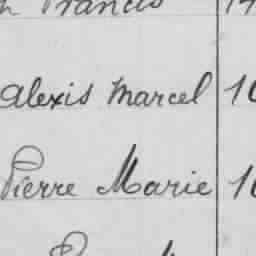 Francis
Alexis Marcel 16
Pierre Marie 16